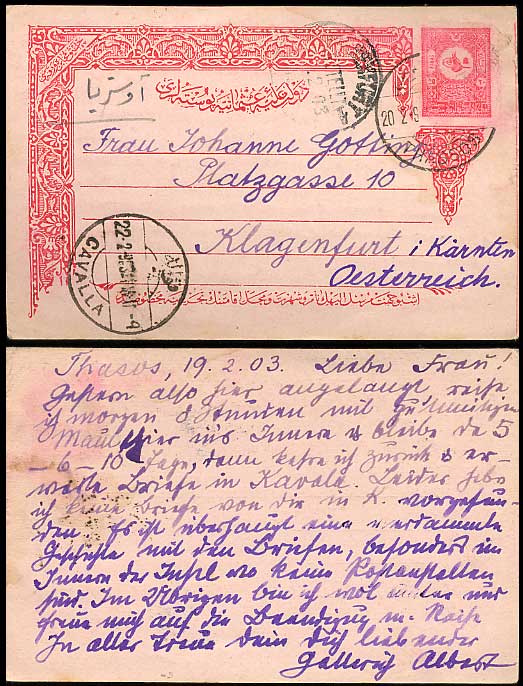 دولت علیه عثمانیه پوسته لری
آوستریا
20 2 9
Frau Johanne Gotting
Platzgasse 10
Klagenfurt i Kärnten
Oesterreich.
22 2
CAVALLA
Thasos, 19.2.03. Liebe Frau!
Gestern also hier angelangt reite
ich morgen 8 Stunden mit
Maultier in's Innere & bleibe da 5
-6-10 Tage, dann kehre ich zurück & er-
warte Briefe in Kavala. Leider habe
ich keine Briefe von dir in K. vorgefun-
den. Es ist überhaupt eine verdammte
Geschichte mit den Briefen, besonders im
Innern der Insel wo keine Postanstalten
sind. Im Übrigen bin ich wol und
freue mich auf die Beendigung m. Reise
In aller Treue Dein Dich liebender
Albert